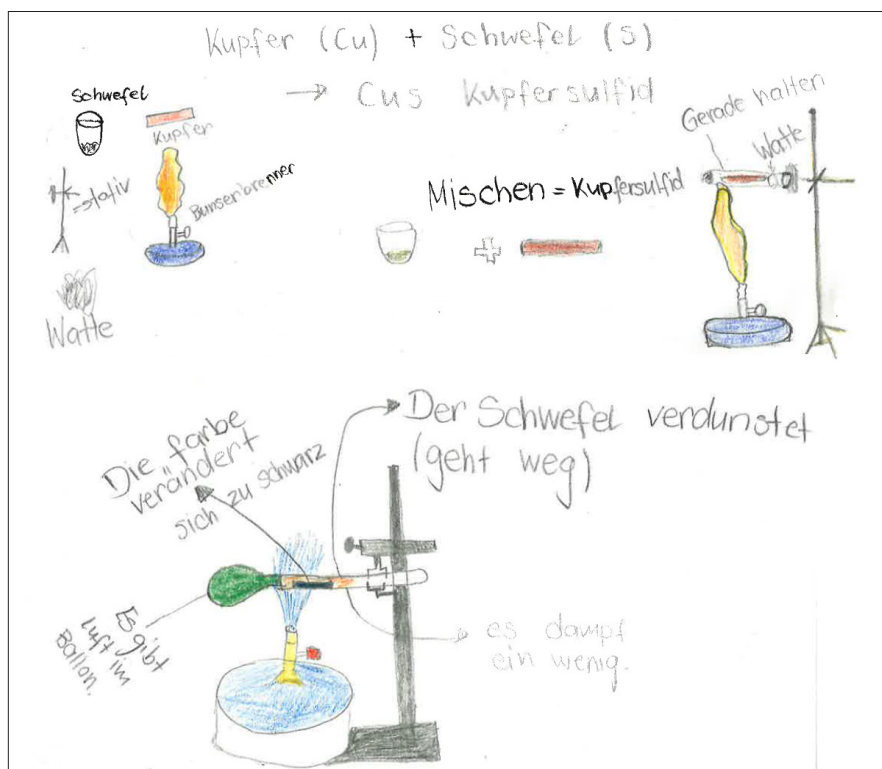 Kupfer (Cu) + Schwefel (S)
→ CuS Kupfersulfid
Schwefel
Kupfer
=stativ
Bunsenbrenner
Watte
Mischen = Kupfersulfid
+
Gerade halten
Watte
Der Schwefel verdunstet
(geht weg)
Die farbe
verändert
sich zu schwarz
Es gibt
luft im
Ballon.
es dampf
ein wenig.